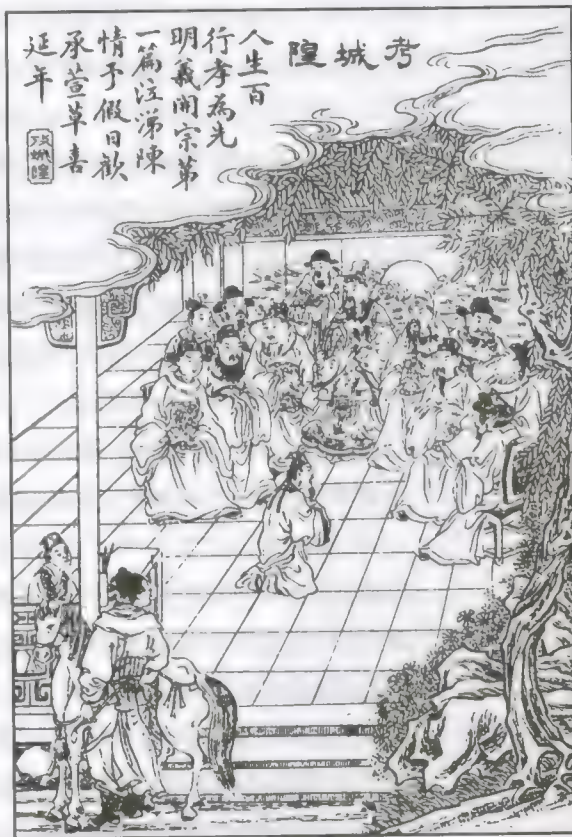 考城隍
人生百
行孝為先
明義開宗第
一篇泣涕陳
情予假日歡
承萱草喜
延年
攷城隍